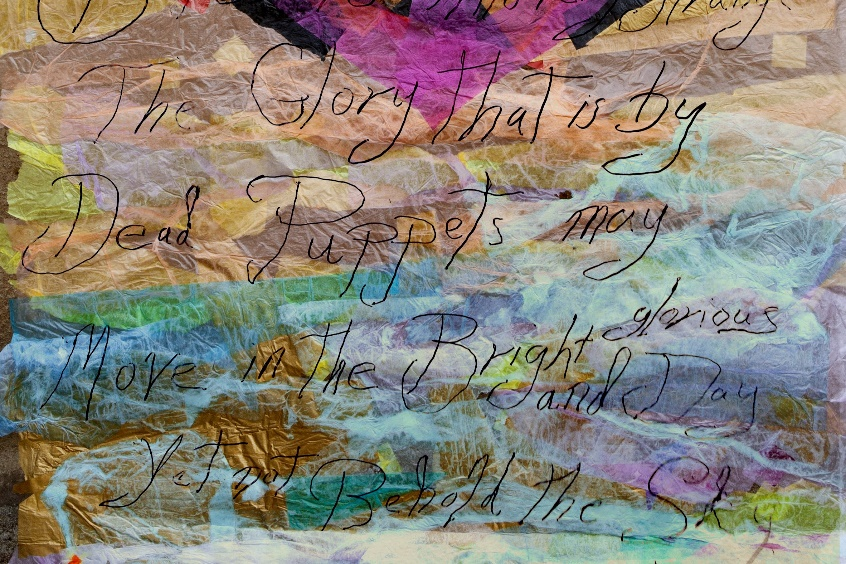 Strange
The Glory that is by
Dead Puppets may
glorious
Move in the Bright and Day
Yet not Behold the Sky